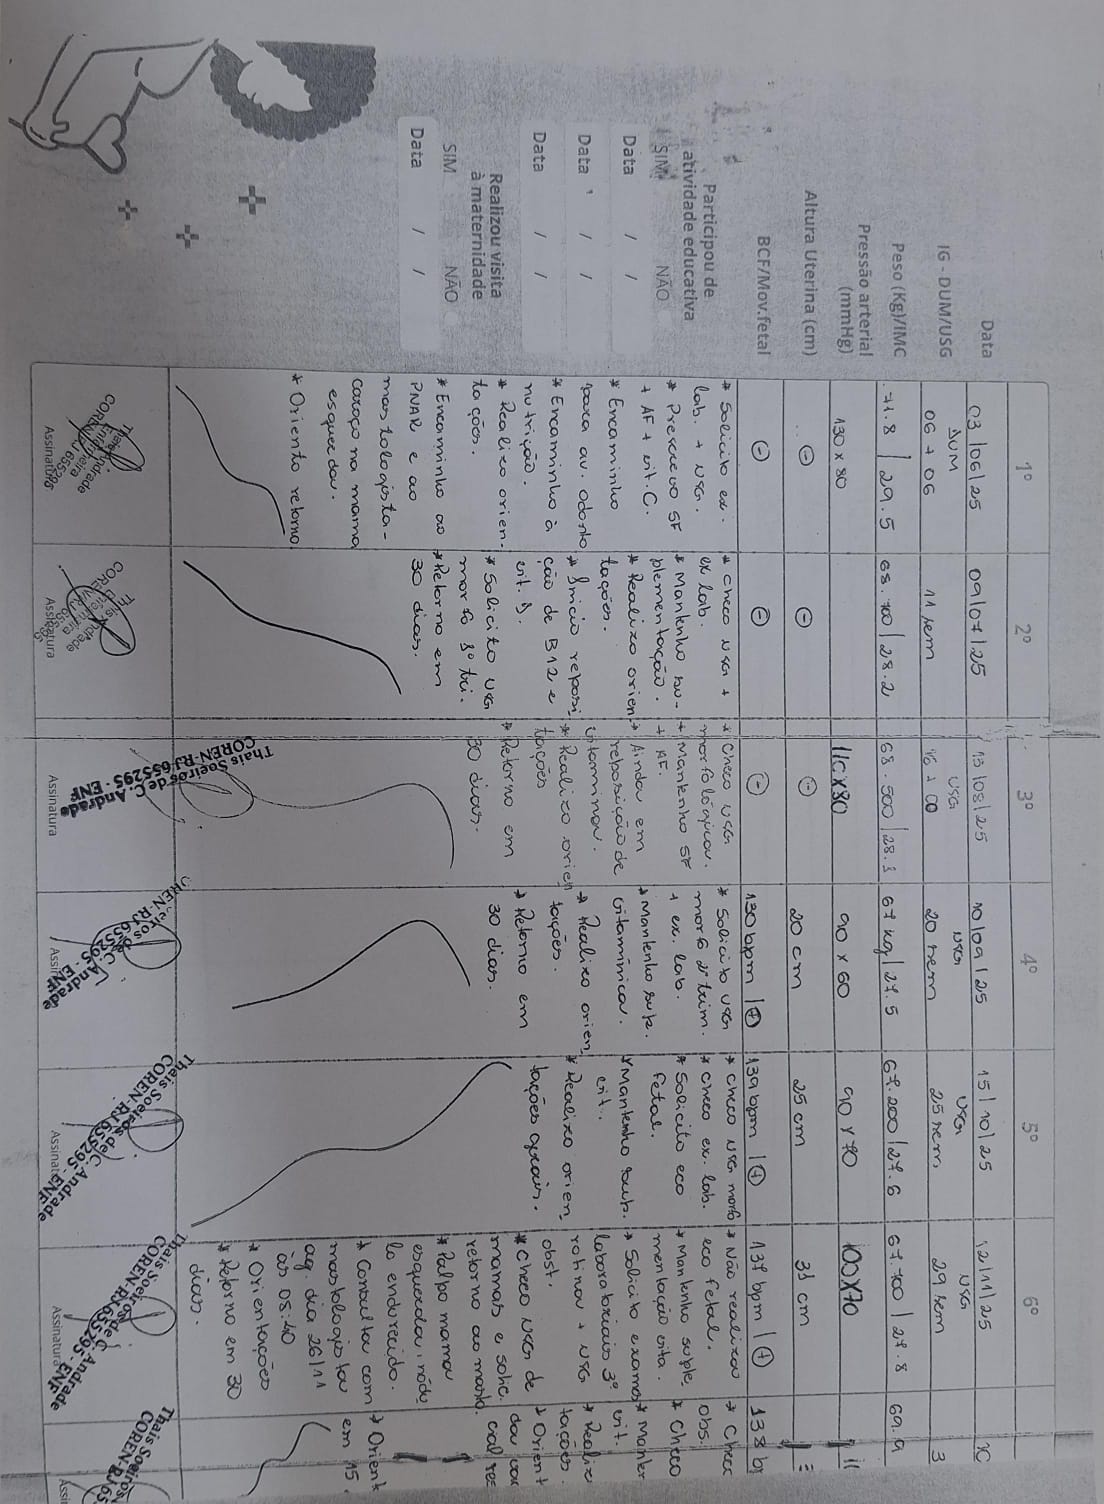 1º
2º
3º
4º
5º
6º
Data
03/06/25
09/07/25
13/08/25
10/09/25
15/10/25
12/11/25
IG - DUM/USG
DUM
06 + 06
11 sem
USG
16 + 00
USG
20 sem
USG
25 sem
USG
29 sem
3
Peso (Kg)/IMC
71.8 | 29.5
68.700 | 28.2
68.500 | 28.1
67 kg | 27.5
67.200 | 27.6
67.700 | 27.8
69.9
Pressão arterial
(mmHg)
130 x 80
110x80
90 x 60
90 x 70
100x70
Altura Uterina (cm)
20 cm
25 cm
31 cm
BCF/Mov.fetal
130 bpm | +
139 bpm | +
137 bpm | +
138 b
Participou de
atividade educativa
SIM NÃO
Data / /
Data / /
Data / /
Realizou visita
à maternidade
SIM NÃO
Data / /
* Solicito ex.
lab. + USG.
* Prescrevo SF
+ AF + vit. C.
* Encaminho
para av. odonto
* Encaminho à
nutrição.
* Realizo orien-
tações.
* Encaminho ao
PNAR e ao
mastologista-
caroço na mama
esquerda.
* Oriento retorno
* Checo USG +
ex lab.
* Mantenho su-
plementação.
* Realizo orien-
tações.
* Início reposi
ção de B12 e
vit. D.
* Solicito USG
morfo 1º tri.
* Retorno em
30 dias.
* Checo USG
morfológica.
* Mantenho SF
+ AF.
* Ainda em
reposição de
vitamina.
* Realizo orien
tações
* Retorno em
30 dias.
* Solicito USG
morfo 2º trim.
+ ex. lab.
* Mantenho sup.
vitamínica.
* Realizo orien
tações.
* Retorno em
30 dias.
* Checo USG morfo
* Checo ex. lab.
* Solicito eco
fetal.
* Mantenho sup.
vit..
* Realizo orien
tações gerais.
* Não realizou
eco fetal.
* Mantenho suple
mentação vita.
* Solicito exames
laboratoriais 3º
rotina + USG
obst.
* Checo USG de
mamas e solic.
retorno ao masto.
* Palpo mama
esquerda, nódu
lo endurecido.
* Consulta com
mastologista
ag. dia 26/11
às 08:40
* Orientações
* Retorno em 30
dias.
* Chec
obs.
* Checo
* Manter
vit.
* Realiz
tações.
* Orient
* Orient
em 15
Thais Andrade
Enfermeira
COREN/RJ 655295
Assinatura
Thais Andrade
Enfermeira
COREN/RJ 655295
Assinatura
Thais Soeiros de C. Andrade
COREN-RJ 655295 - ENF
Assinatura
eiros de C. Andrade
REN-RJ 655295 - ENF
Assin
Thais Soeiros de C. Andrade
COREN-RJ 655295 - ENF
Assinat
Thais Soeiros de C. Andrade
COREN-RJ 655295 - ENF
Assinatura
Thais Soeiros
COREN-RJ 65
Assi